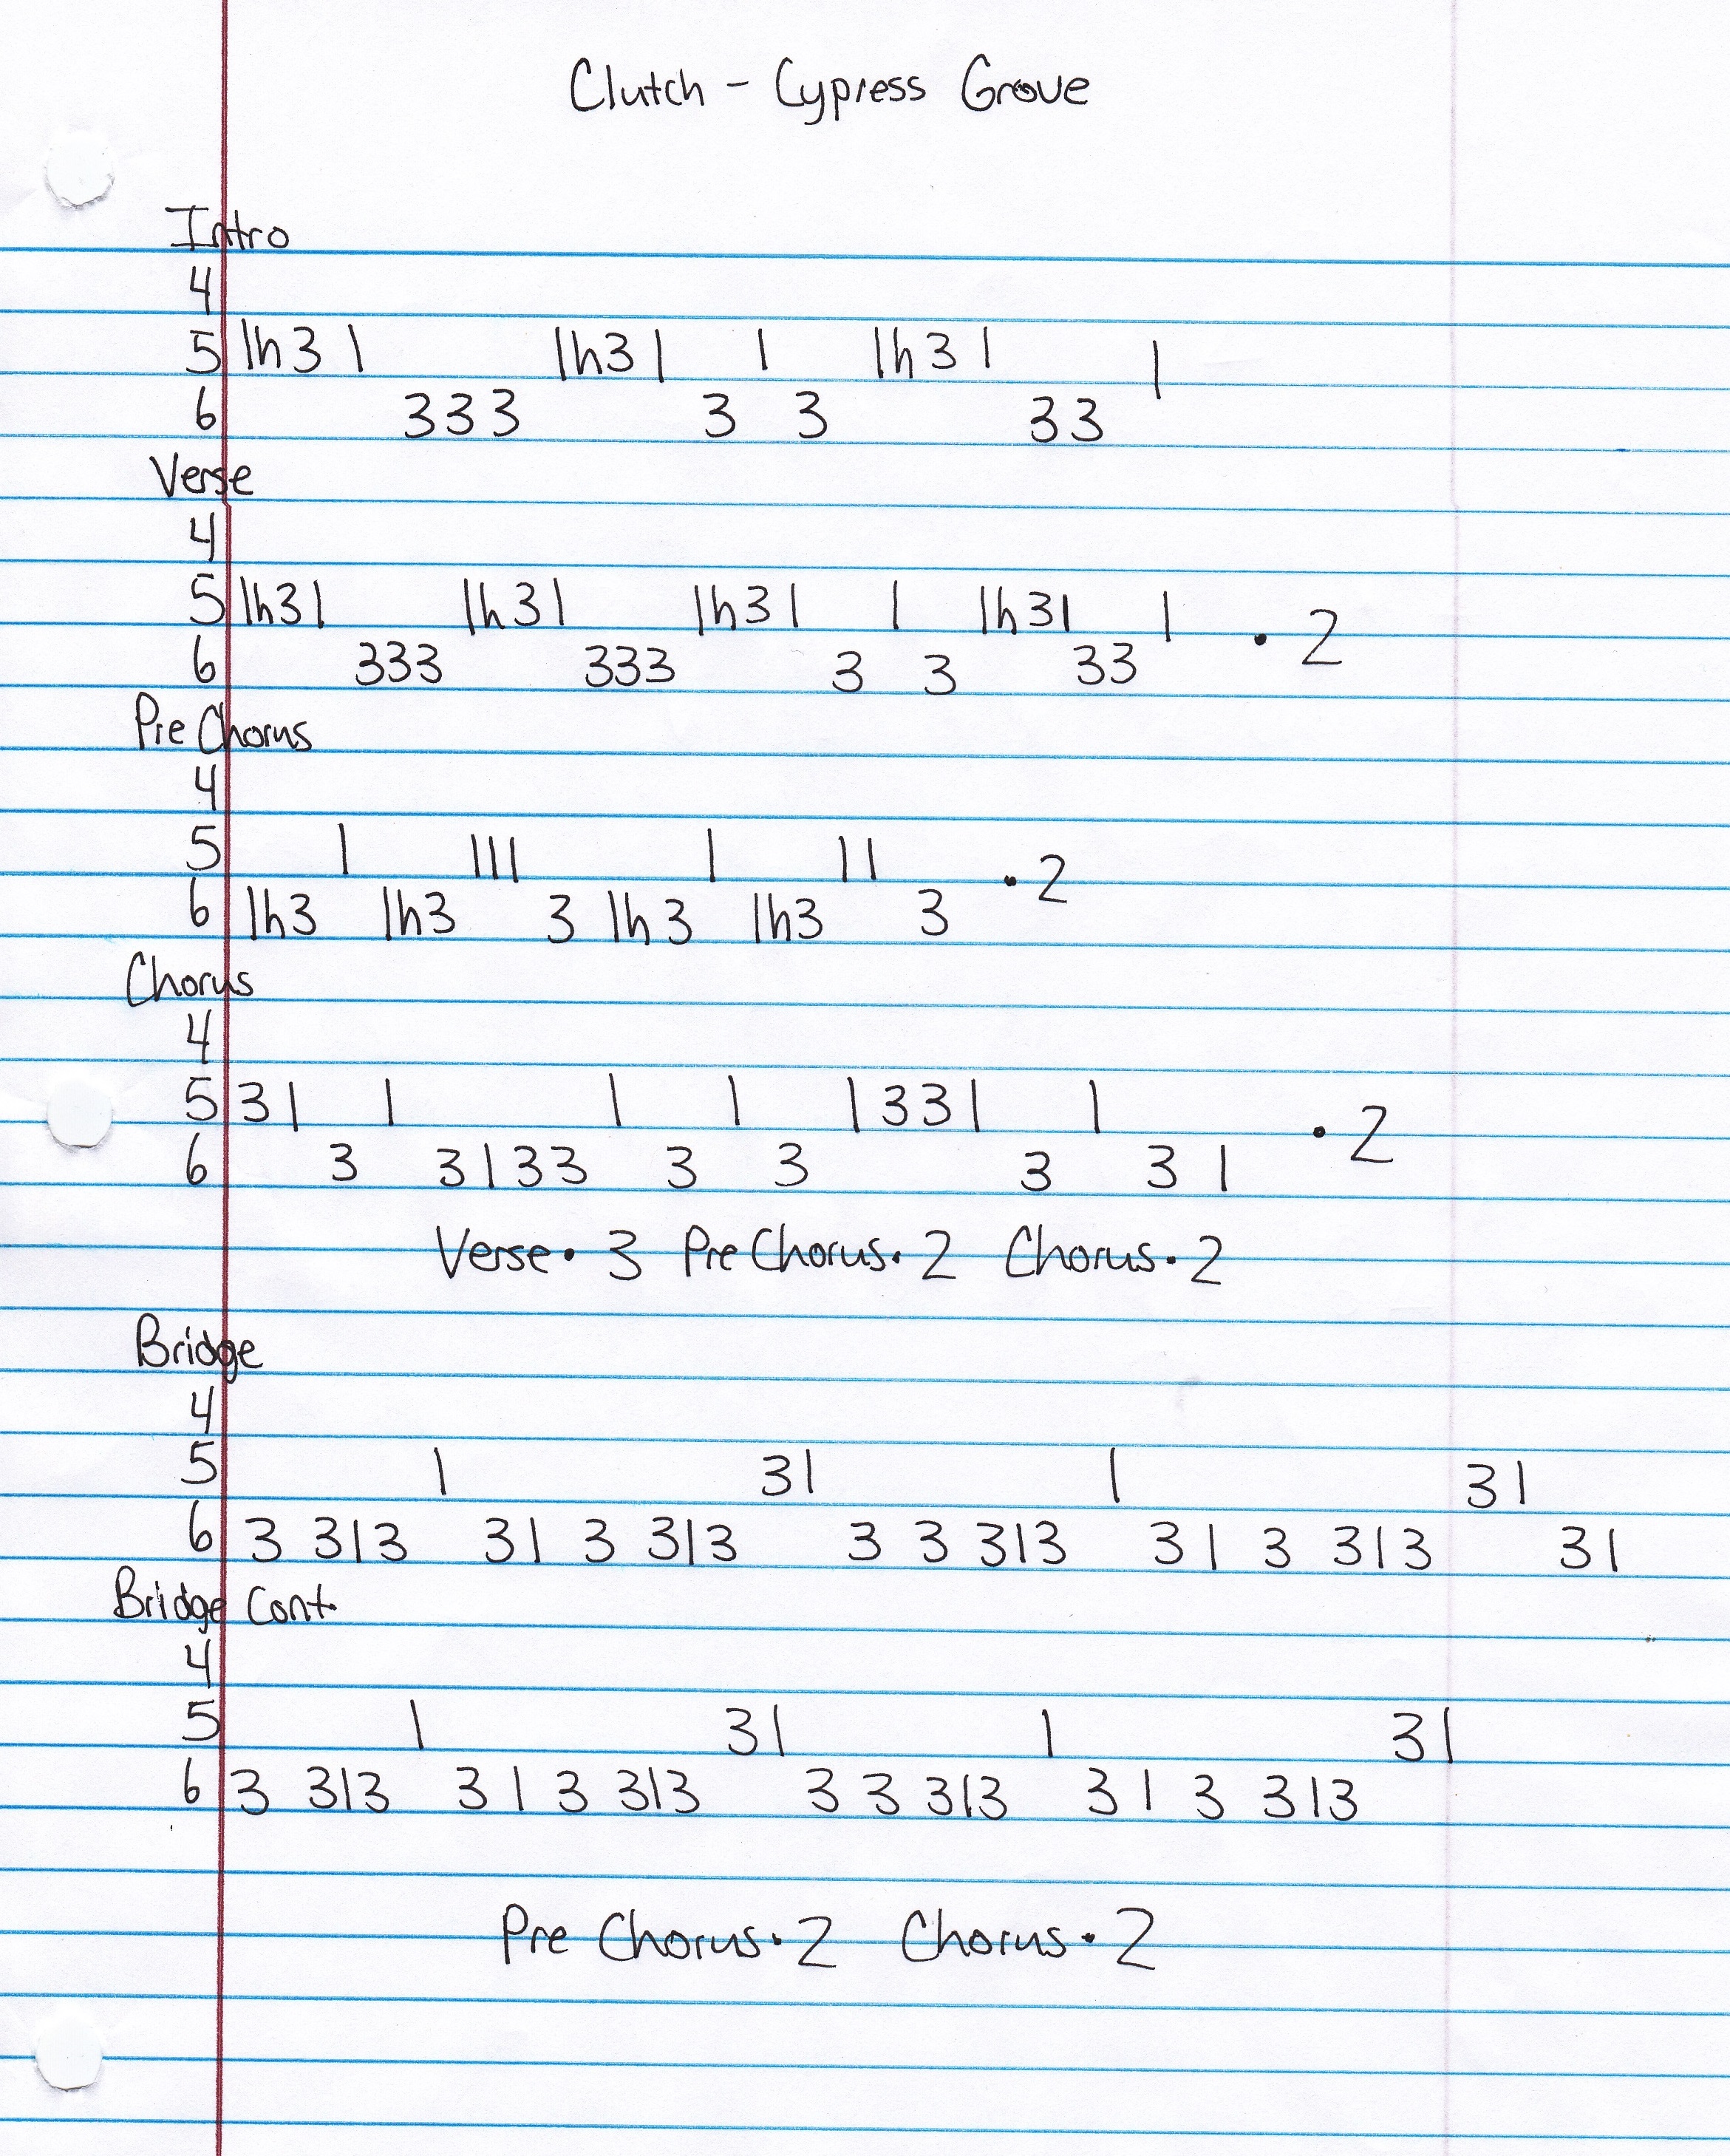 Clutch - Cypress Grove
Intro
4
5 1h31 1h31 1 1h31 1
6 333 3 3 33
Verse
4
5 1h31 1h31 1h31 1 1h31 1 • 2
6 333 333 3 3 33
Pre Chorus
4
5 1 111 1 11 • 2
6 1h3 1h3 3 1h3 1h3 3
Chorus
4
5 31 1 1 1 1331 1 • 2
6 3 3133 3 3 3 31
Verse • 3 Pre Chorus • 2 Chorus • 2
Bridge
4
5 1 31 1 31
6 3 313 31 3 313 3 3 313 31 3 313 31
Bridge Cont.
4
5 1 31 1 31
6 3 313 31 3 313 3 3 313 31 3 313
Pre Chorus • 2 Chorus • 2